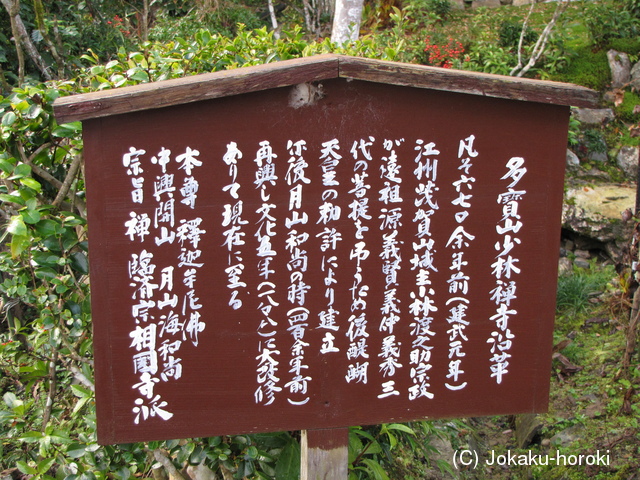 多寶山少林禅寺沿革
凡そ六七〇余年前(建武元年)
江州茂賀山城主小林渡之助宗政
が遠祖源義賢義仲義秀三
代の菩提を弔うため後醍醐
天皇の勅許により建立
尓後月山和尚の時(四百余年前)
再興し文化五年(一八〇八)に大改修
ありて現在に至る
本尊 釋迦牟尼佛
中興開山 月山海和尚
宗旨 禅 臨済宗相國寺派
(C) Jokaku-horoki